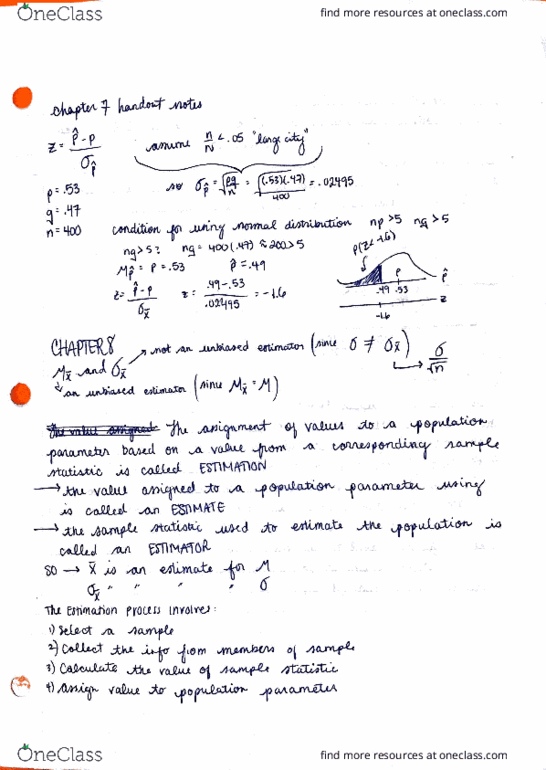 OneClass
find more resources at oneclass.com
chapter 7 handout notes
z = p̂ - p / σp̂
assume n/N < .05 "large city"
so σp̂ = √(pq/n) = √((.53)(.47)/400) = .02495
p = .53
q = .47
n = 400
condition for using normal distribution np > 5 nq > 5
nq > 5? nq = 400(.47) ≈ 200 > 5
p(z < -1.6)
Mp̂ = p = .53 p̂ = .49
z = p̂ - p / σx̄ z = .49 - .53 / .02495 = -1.6
p p̂
.49 .53
z
-1.6
CHAPTER 8
not an unbiased estimator (since σ ≠ σx̄)
σ/√n
Mx̄ and σx̄
an unbiased estimator (since Mx̄ = M)
The value assigned The assignment of values to a population
parameter based on a value from a corresponding sample
statistic is called ESTIMATION
→ the value assigned to a population parameter using
is called an ESTIMATE
→ the sample statistic used to estimate the population is
called an ESTIMATOR
SO → x̄ is an estimate for M
σx̄ " " " " σ
The Estimation Process involves:
1) Select a sample
2) Collect the info from members of sample
3) Calculate the value of sample statistic
4) Assign value to population parameter
OneClass
find more resources at oneclass.com